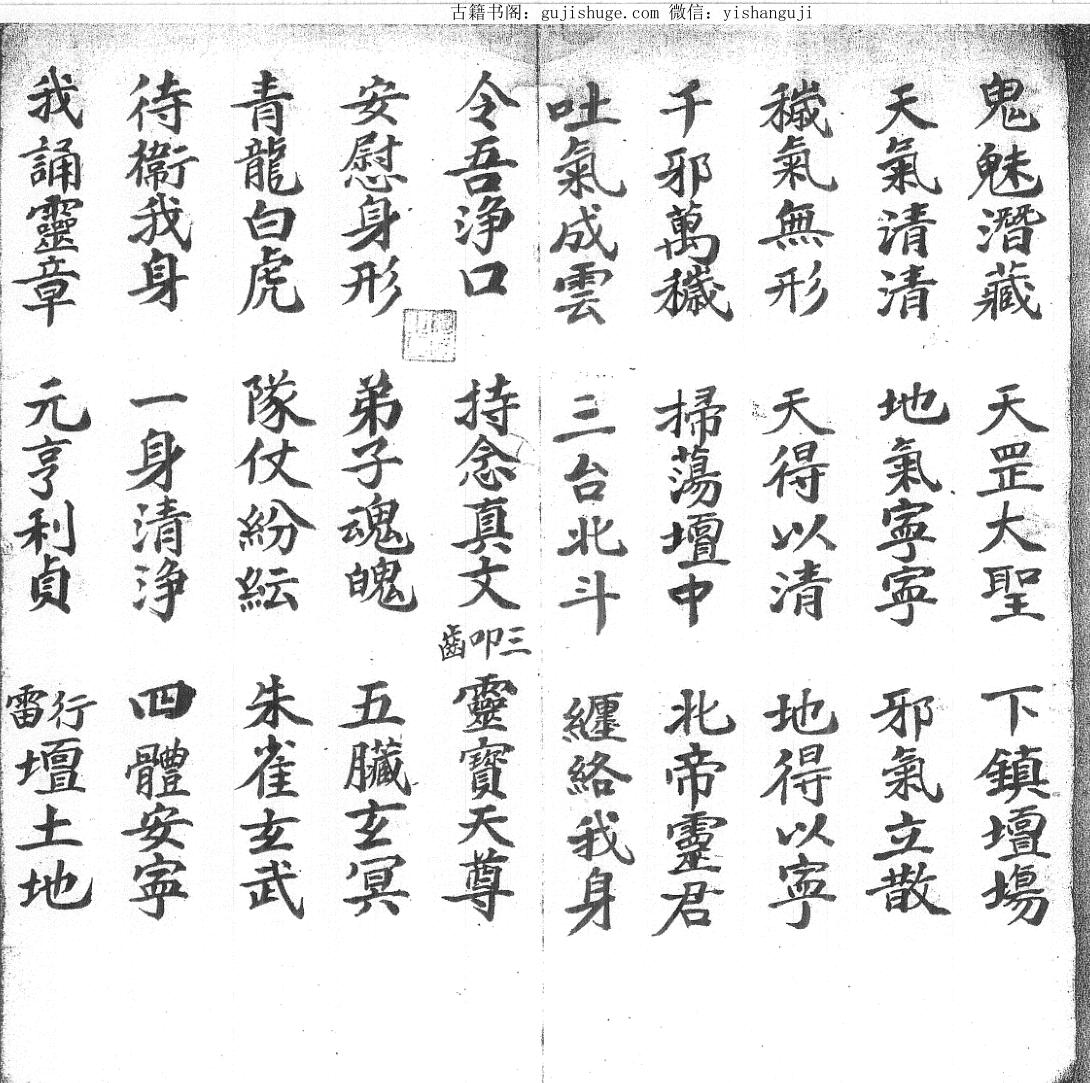 古籍书阁：gujishuge.com 微信：yishanguji
鬼魅潛藏 天罡大聖 下鎮壇場
天氣清清 地氣寧寧 邪氣立散
穢氣無形 天得以清 地得以寧
千邪萬穢 掃蕩壇中 北帝靈君
吐氣成雲 三台北斗 纏絡我身
令吾淨口 持念真文 三叩齒 靈寶天尊
安慰身形 弟子魂魄 五臟玄冥
青龍白虎 隊仗紛紜 朱雀玄武
待衛我身 一身清淨 四體安寧
我誦靈章 元亨利貞 行雷壇土地